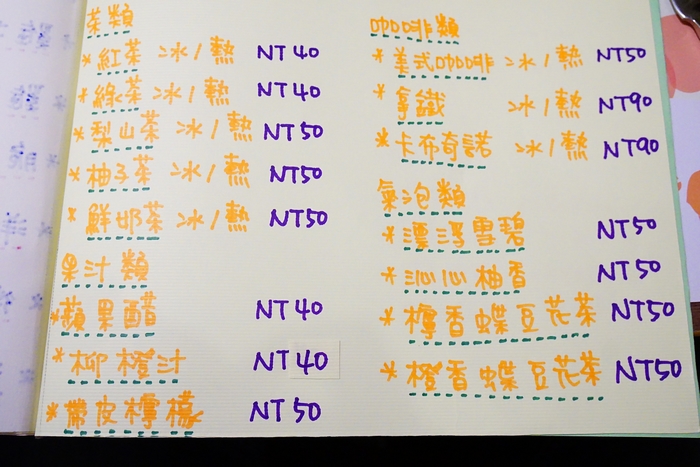 茶類
*紅茶 冰/熱 NT40
*綠茶 冰/熱 NT40
*梨山茶 冰/熱 NT50
*柚子茶 冰/熱 NT50
*鮮奶茶 冰/熱 NT50
果汁類
*蘋果醋 NT40
*柳橙汁 NT40
*帶皮檸檬 NT50
咖啡類
*美式咖啡 冰/熱 NT50
*拿鐵 冰/熱 NT90
*卡布奇諾 冰/熱 NT90
氣泡類
*漂浮雪碧 NT50
*沁心柚香 NT50
*檸香蝶豆花茶 NT50
*橙香蝶豆花茶 NT50